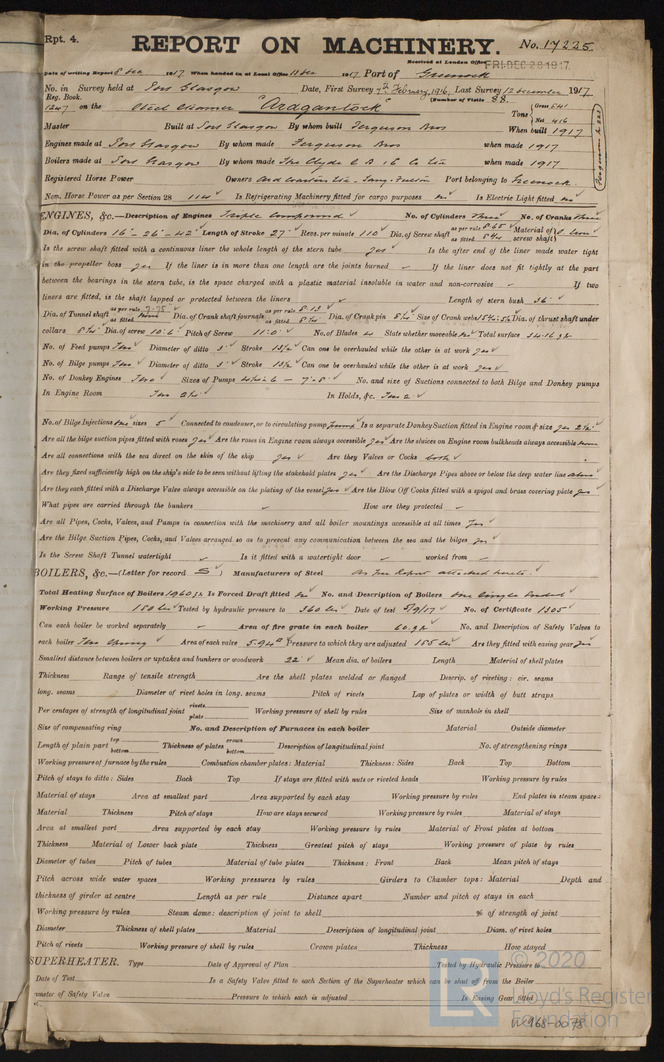 Rpt. 4.
REPORT ON MACHINERY. No. 17225.
Received at London Office FRI. DEC 28 1917.
Date of writing Report 8 Dec 1917 When handed in at Local Office 11 Dec 1917 Port of Greenock
No. in Survey held at Port Glasgow Date, First Survey 7th February, 1916, Last Survey 12 December 1917
Reg. Book. (Number of Visits 88.
1247 on the Steel Steamer "Ardgantock" Tons Gross 541 Net 416
Master Built at Port Glasgow By whom built Ferguson Bros When built 1917
Engines made at Port Glasgow By whom made Ferguson Bros when made 1917
Boilers made at Port Glasgow By whom made The Clyde when made 1917
Registered Horse Power Owners Port belonging to Greenock.
Nom. Horse Power as per Section 28 114 Is Refrigerating Machinery fitted for cargo purposes no Is Electric Light fitted no
ENGINES, &c.—Description of Engines Triple Compound No. of Cylinders Three No. of Cranks Three
Dia. of Cylinders 16"-26"-42" Length of Stroke 27" Revs. per minute 110 Dia. of Screw shaft as per rule 8.65 as fitted Material of screw shaft
Is the screw shaft fitted with a continuous liner the whole length of the stern tube yes Is the after end of the liner made water tight
in the propeller boss yes If the liner is in more than one length are the joints burned If the liner does not fit tightly at the part
between the bearings in the stern tube, is the space charged with a plastic material insoluble in water and non-corrosive If two
liners are fitted, is the shaft lapped or protected between the liners Length of stern bush 36"
Dia. of Tunnel shaft as per rule 7.75 as fitted Dia. of Crank shaft journals as per rule 8.13 as fitted Dia. of Crank pin Size of Crank webs Dia. of thrust shaft under
collars Dia. of screw 10.6 Pitch of Screw 11.0 No. of Blades 4 State whether moveable no Total surface
No. of Feed pumps Two Diameter of ditto 3" Stroke 13½ Can one be overhauled while the other is at work yes
No. of Bilge pumps Two Diameter of ditto 3" Stroke 13½ Can one be overhauled while the other is at work yes
No. of Donkey Engines Two Sizes of Pumps No. and size of Suctions connected to both Bilge and Donkey pumps
In Engine Room Two In Holds, &c. Two 2
No. of Bilge Injections one sizes 5 Connected to condenser, or to circulating pump pump Is a separate Donkey Suction fitted in Engine room & size yes
Are all the bilge suction pipes fitted with roses yes Are the roses in Engine room always accessible yes Are the sluices on Engine room bulkheads always accessible none
Are all connections with the sea direct on the skin of the ship yes Are they Valves or Cocks both
Are they fixed sufficiently high on the ship's side to be seen without lifting the stokehold plates yes Are the Discharge Pipes above or below the deep water line above
Are they each fitted with a Discharge Valve always accessible on the plating of the vessel yes Are the Blow Off Cocks fitted with a spigot and brass covering plate yes
What pipes are carried through the bunkers How are they protected
Are all Pipes, Cocks, Valves, and Pumps in connection with the machinery and all boiler mountings accessible at all times yes
Are the Bilge Suction Pipes, Cocks, and Valves arranged so as to prevent any communication between the sea and the bilges yes
Is the Screw Shaft Tunnel watertight Is it fitted with a watertight door worked from
BOILERS, &c.—(Letter for record S) Manufacturers of Steel As per Report attached hereto.
Total Heating Surface of Boilers 1960 Is Forced Draft fitted no No. and Description of Boilers One Single Ended
Working Pressure 180 lbs Tested by hydraulic pressure to 360 lbs Date of test 5/9/17 No. of Certificate 1305
Can each boiler be worked separately Area of fire grate in each boiler 60 No. and Description of Safety Valves to
each boiler Two Spring Area of each valve 5.94 Pressure to which they are adjusted 185 lbs Are they fitted with easing gear yes
Smallest distance between boilers or uptakes and bunkers or woodwork 22" Mean dia. of boilers Length Material of shell plates
Thickness Range of tensile strength Are the shell plates welded or flanged Descrip. of riveting: cir. seams
long. seams Diameter of rivet holes in long. seams Pitch of rivets Lap of plates or width of butt straps
Per centages of strength of longitudinal joint rivets plate Working pressure of shell by rules Size of manhole in shell
Size of compensating ring No. and Description of Furnaces in each boiler Material Outside diameter
Length of plain part top bottom Thickness of plates crown bottom Description of longitudinal joint No. of strengthening rings
Working pressure of furnace by the rules Combustion chamber plates: Material Thickness: Sides Back Top Bottom
Pitch of stays to ditto: Sides Back Top If stays are fitted with nuts or riveted heads Working pressure by rules
Material of stays Area at smallest part Area supported by each stay Working pressure by rules End plates in steam space:
Material Thickness Pitch of stays How are stays secured Working pressure by rules Material of stays
Area at smallest part Area supported by each stay Working pressure by rules Material of Front plates at bottom
Thickness Material of Lower back plate Thickness Greatest pitch of stays Working pressure of plate by rules
Diameter of tubes Pitch of tubes Material of tube plates Thickness: Front Back Mean pitch of stays
Pitch across wide water spaces Working pressures by rules Girders to Chamber tops: Material Depth and
thickness of girder at centre Length as per rule Distance apart Number and pitch of stays in each
Working pressure by rules Steam dome: description of joint to shell % of strength of joint
Diameter Thickness of shell plates Material Description of longitudinal joint Diam. of rivet holes
Pitch of rivets Working pressure of shell by rules Crown plates Thickness How stayed
SUPERHEATER. Type Date of Approval of Plan Tested by Hydraulic Pressure to
Date of Test Is a Safety Valve fitted to each Section of the Superheater which can be shut off from the Boiler
Diameter of Safety Valve Pressure to which each is adjusted Is Easing Gear fitted
LR © 2020
Lloyd's Register
Foundation
W968-0078